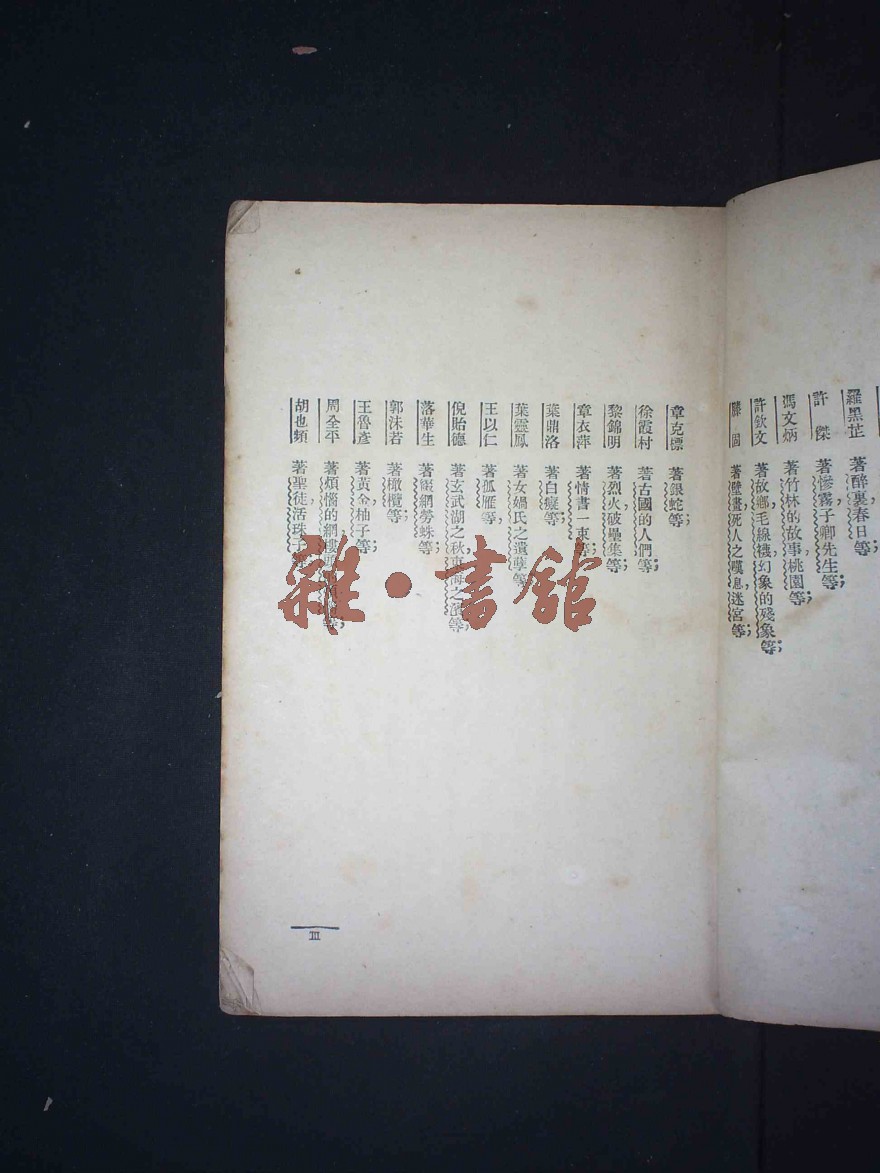 羅黑芷 著醉裏春日等;
許 傑 著慘霧,子卿先生等;
馮文炳 著竹林的故事,桃園等;
許欽文 著故鄉,毛線襪,幻象的殘象等;
滕 固 著壁畫,死人之嘆息,迷宮等;
章克標 著銀蛇等;
徐霞村 著古國的人們等;
黎錦明 著烈火,破壘集等;
章衣萍 著情書一束等;
葉鼎洛 著白癡等;
葉靈鳳 著女媧氏之遺孽等;
王以仁 著孤雁等;
倪貽德 著玄武湖之秋,東海之濱等;
落華生 著綴網勞蛛等;
郭沫若 著橄欖等;
王魯彥 著黃金,柚子等;
周全平 著煩惱的網,樓頭
胡也頻 著聖徒,活珠子
III
雜·書館